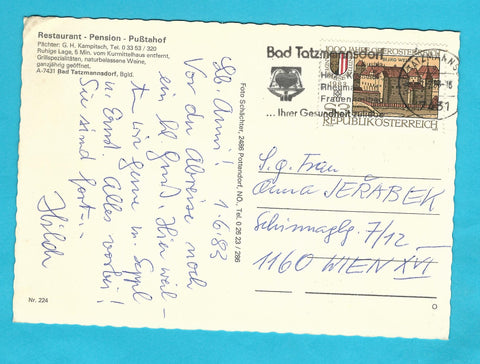 Restaurant - Pension - Pußtahof
Pächter: G. H. Kampitsch, Tel. 0 33 53 / 320
Ruhige Lage, 5 Min. vom Kurmittelhaus entfernt,
Grillspezialitäten, naturbelassene Weine,
ganzjährig geöffnet.
A-7431 Bad Tatzmannsdorf, Bgld.
1.6.83
Lb. Anni!
Vor du Abreise noch
ein lb. Gruß. Hier weil-
ten wir gerne m. Seppl
u. Ernst. Alles vorbei!
Sie sind fort...
Hilde
Nr. 224
Foto Schlichter, 2486 Pottendorf, NÖ., Tel. 0 26 23 / 286
Bad Tatzmannsdorf
Rheuma
Frauen
... Ihrer Gesundheit zuliebe
1000 JAHRE OBERÖSTERREICH
S3
REPUBLIK ÖSTERREICH
7431
S. g. Frau
Anna JERÁBEK
7/12
1160 WIEN XVI